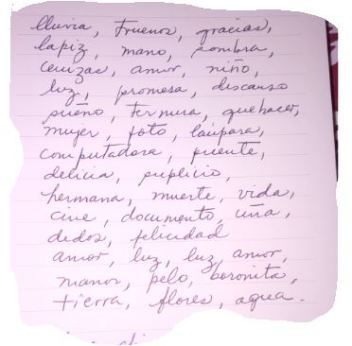 lluvia, truenos, gracias,
lapiz, mano, sombra,
cenizas, amor, niño,
luz, promesa, discurso
sueño, ternura, quehacer,
mujer, foto, lámpara,
computadora, puente,
delicia, suplicio,
hermana, muerte, vida,
cine, documento, uña,
dedos, felicidad
amor, luz, luz, amor,
manos, pelo,
tierra, flores, agua.